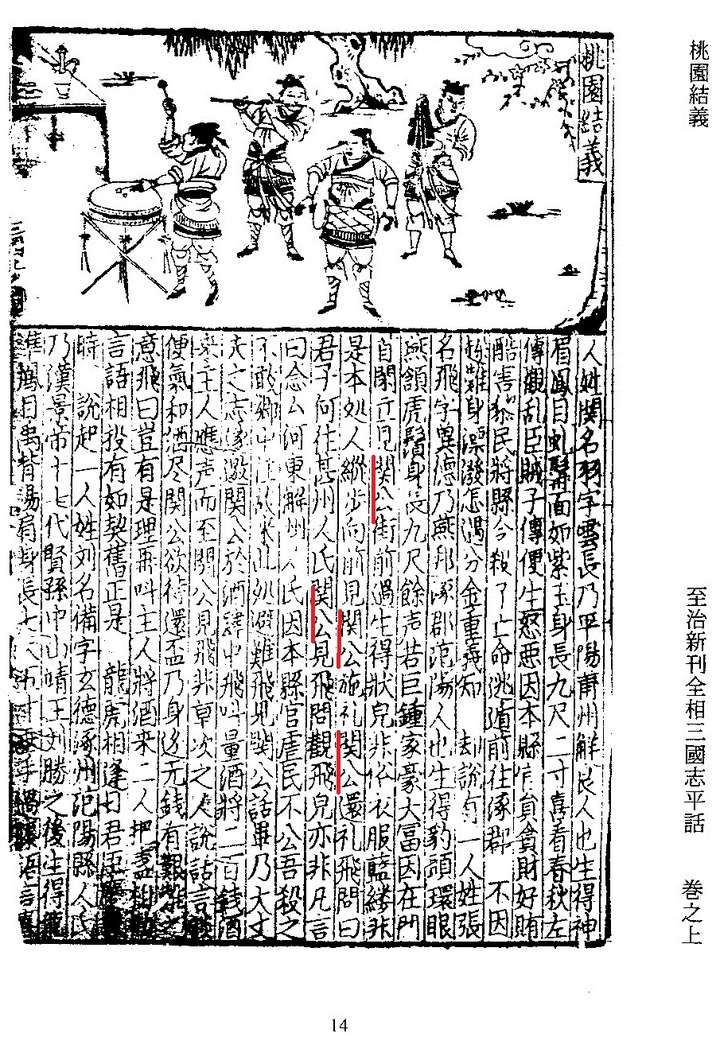 桃園結義
至治新刊全相三國志平話 卷之上
桃園結義
人姓関名羽字雲長乃平陽蒲州解良人也生得神
眉鳳目虬髯面如紫玉身長九尺二寸喜看春秋左
傳觀乱臣賊子傳便生怒惡因本縣官員貪財好賄
酷害黎民將縣令殺了亡命逃遁前往涿郡 不因
趂難身漂潑怎遇分金重義知 去說有一人姓張
名飛字異德乃燕邦涿郡范陽人也生得豹頭環眼
燕頷虎鬚身長九尺餘声若巨鍾家豪大富因在門
首閑立見関公街前過生得狀皃非俗衣服藍縷非
是本処人縱步向前見関公施礼関公還礼飛問曰
君子何往甚州人氏関公見飛問觀飛皃亦非凡言
曰念公河東解州人氏因本縣官虐民不公吾殺之
不敢鄉中住故來此処避難飛見関公話畢乃大丈
夫之志遂邀関公於酒肆中飛叫量酒將二百錢酒
來主人應声而至関公見飛非草次之人說話言談
便氣和酒尽関公欲待還盃乃身边无錢有艱難之
意飛曰豈有是理再叫主人將酒來二人把盞相勸
言語相投有如契舊正是 龍虎相逢日君臣
時 說起一人姓刘名備字玄德涿州范陽縣人氏
乃漢景帝十七代賢孫中山靖王刘勝之後生得龍
準鳳目禹背湯肩身長七尺五寸垂手過膝語言喜
14